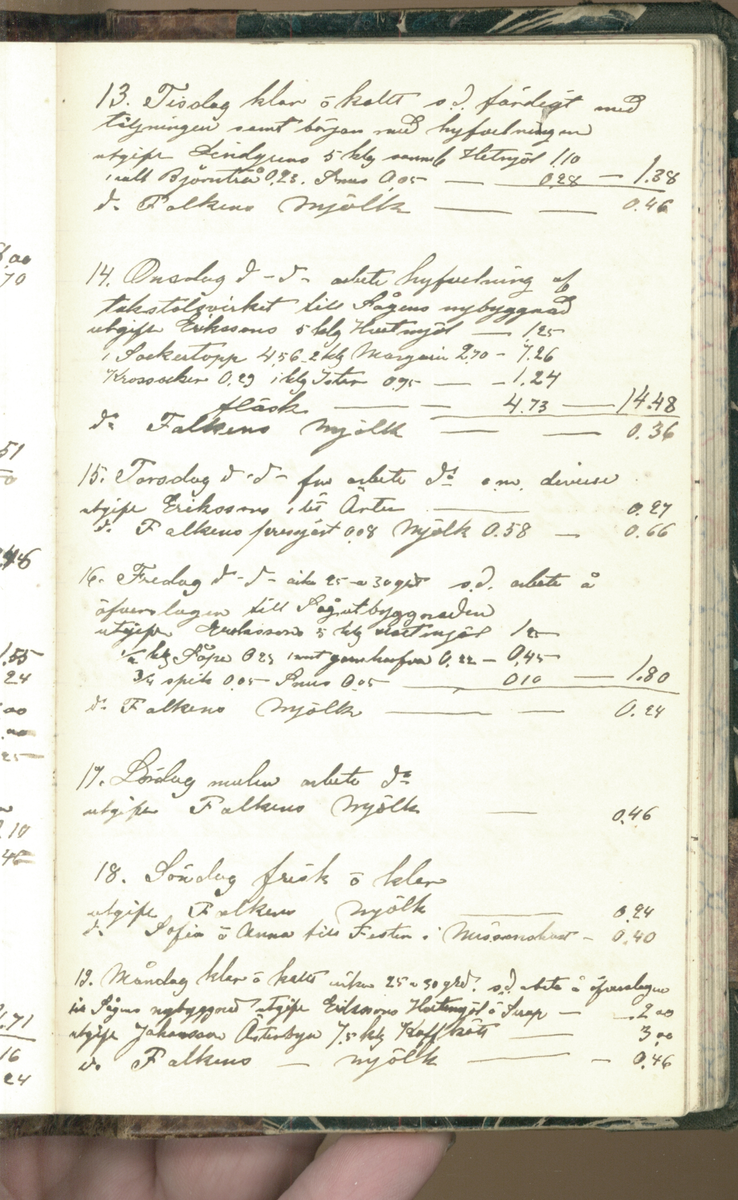 00
70
51
0
246
1.55
24
00
00
25
2.17
46
1.71
16
24
13. Tisdag klar ö kallt s.d. färdigt med
täljningen samt börjar med hyfvelningen
utgift Lindgrens 5 klg Hvetmjöl 1.10
0.23. Snus 0.05 — 0.28 — 1.38
do Falkens Mjölk — — 0.46
14. Onsdag d - d - arbete hyfvelning af
takstolsvirket till Sågens nybyggnad
utgift Erikssons 5 klg Hvetmjöl — 1.25
1 Sockertopp 4.56 2 klg Margarin 2.70 - 7.26
Krossocker 0.29 1 klg Ister 0.95 — - 1.24
fläsk — — 4.73 — 14.48
do Falkens Mjölk — — 0.36
15. Torsdag d - d - fm arbete do e.m. diverse
utgift Erikssons Ärter — 0.27
do Falkens pressjäst 0.08 Mjölk 0.58 — 0.66
16. Fredag d - d - cirka 25 a 30 grd s.d. arbete å
öfverslagen till Sågutbyggnaden
utgift Erikssons 5 klg Hvetmjöl 1.25
1/2 klg Såpa 0.23 0.22 - 0.45
3/4 spik 0.05 Snus 0.05 — 0.10 — 1.80
do Falkens Mjölk — — 0.24
17. Lördag mulen arbete do
utgift Falkens Mjölk — 0.46
18. Söndag frisk ö klar
utgift Falkens Mjölk — 0.24
do Sofia ö Anna till Festen i Missionshuset - 0.40
19. Måndag klar ö kallt cirka 25 a 30 grd. s.d. arbete å öfverslagen
till Sågens nybyggnad utgift Erikssons Hvetmjöl ö — 2.00
utgift Johansson Österbyn 7.5 klg kött — 3.00
do Falkens — mjölk — — 0.46